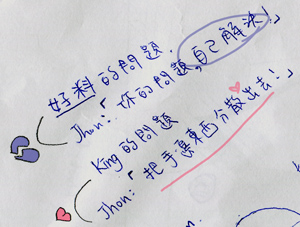 好料的問題.
Jhon:「你的問題,自己解決!」
King的問題
Jhon:「把手邊東西分散出去!」